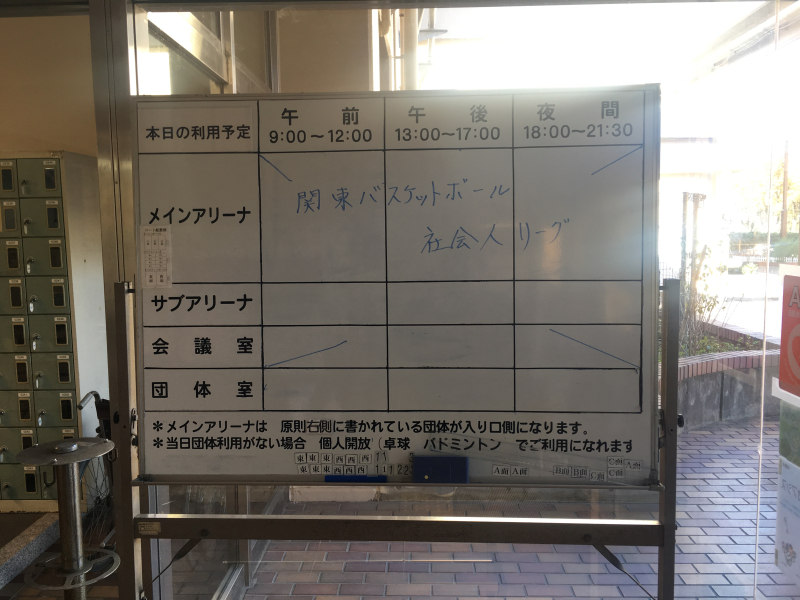 本日の利用予定
午前
9:00～12:00
午後
13:00～17:00
夜間
18:00～21:30
メインアリーナ
関東バスケットボール
社会人リーグ
サブアリーナ
会議室
団体室
＊メインアリーナは 原則右側に書かれている団体が入り口側になります。
＊当日団体利用がない場合 個人開放（卓球 バドミントン でご利用になれます
東東東西西西
東東東西西西
A面A面
B面B面C面
C面
C面